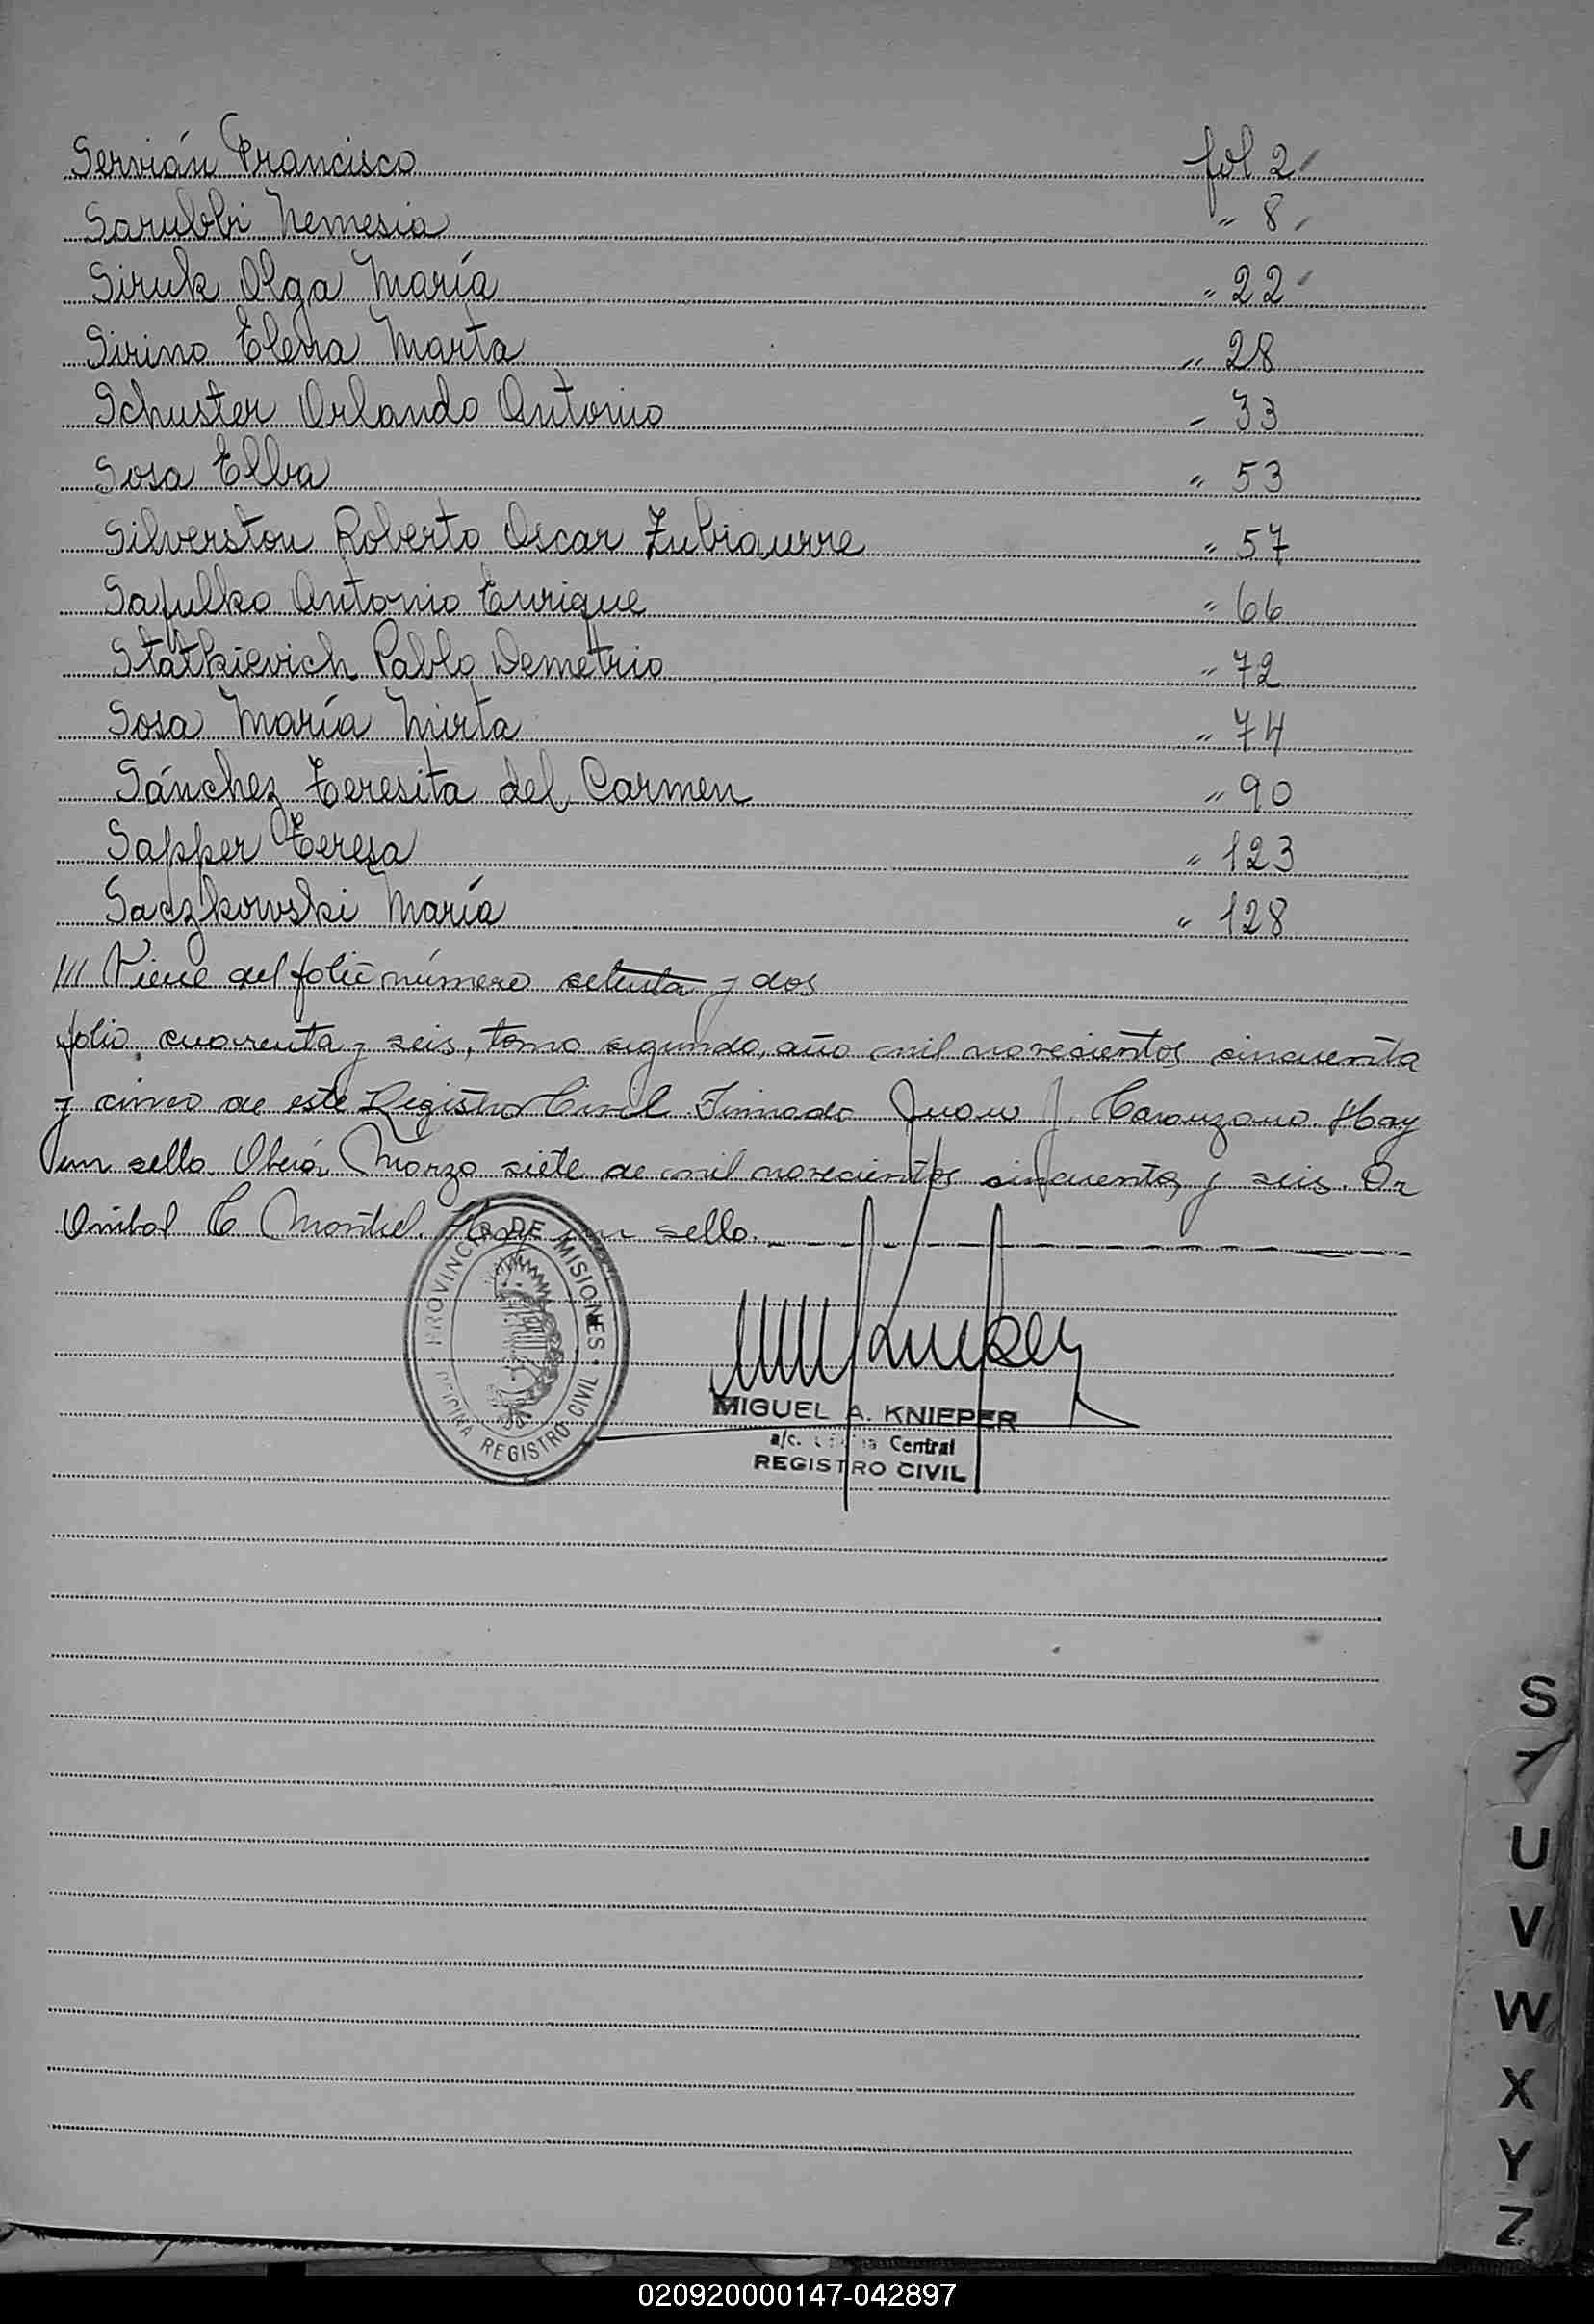 Servián Francisco fol 2
Sarubbi Nemesia " 8
Siruk Olga María " 22
Sirino Elena Marta " 28
Schuster Orlando Antonio - 33
Sosa Elba " 53
Silverston Roberto Oscar Zubiaurre " 57
Safulko Antonio Enrique " 66
Statkievich Pablo Demetrio " 72
Sosa María Mirta " 74
Sánchez Teresita del Carmen " 90
Sapper Teresa " 123
Saczkowski María " 128
/// Viene del folio número setenta y dos
folio cuarenta y seis, tomo segundo, año mil novecientos cincuenta
y cinco de este Registro Civil. Firmado Juan J. Caranzano. Hay
un sello. Oberá, Marzo siete de mil novecientos cincuenta y seis. Dr
Anibal C Montiel. Hay un sello.
PROVINCIA DE MISIONES
OFICINA REGISTRO CIVIL
MIGUEL A. KNIEPER
a/c. Central
REGISTRO CIVIL
S
T
U
V
W
X
Y
Z
020920000147-042897